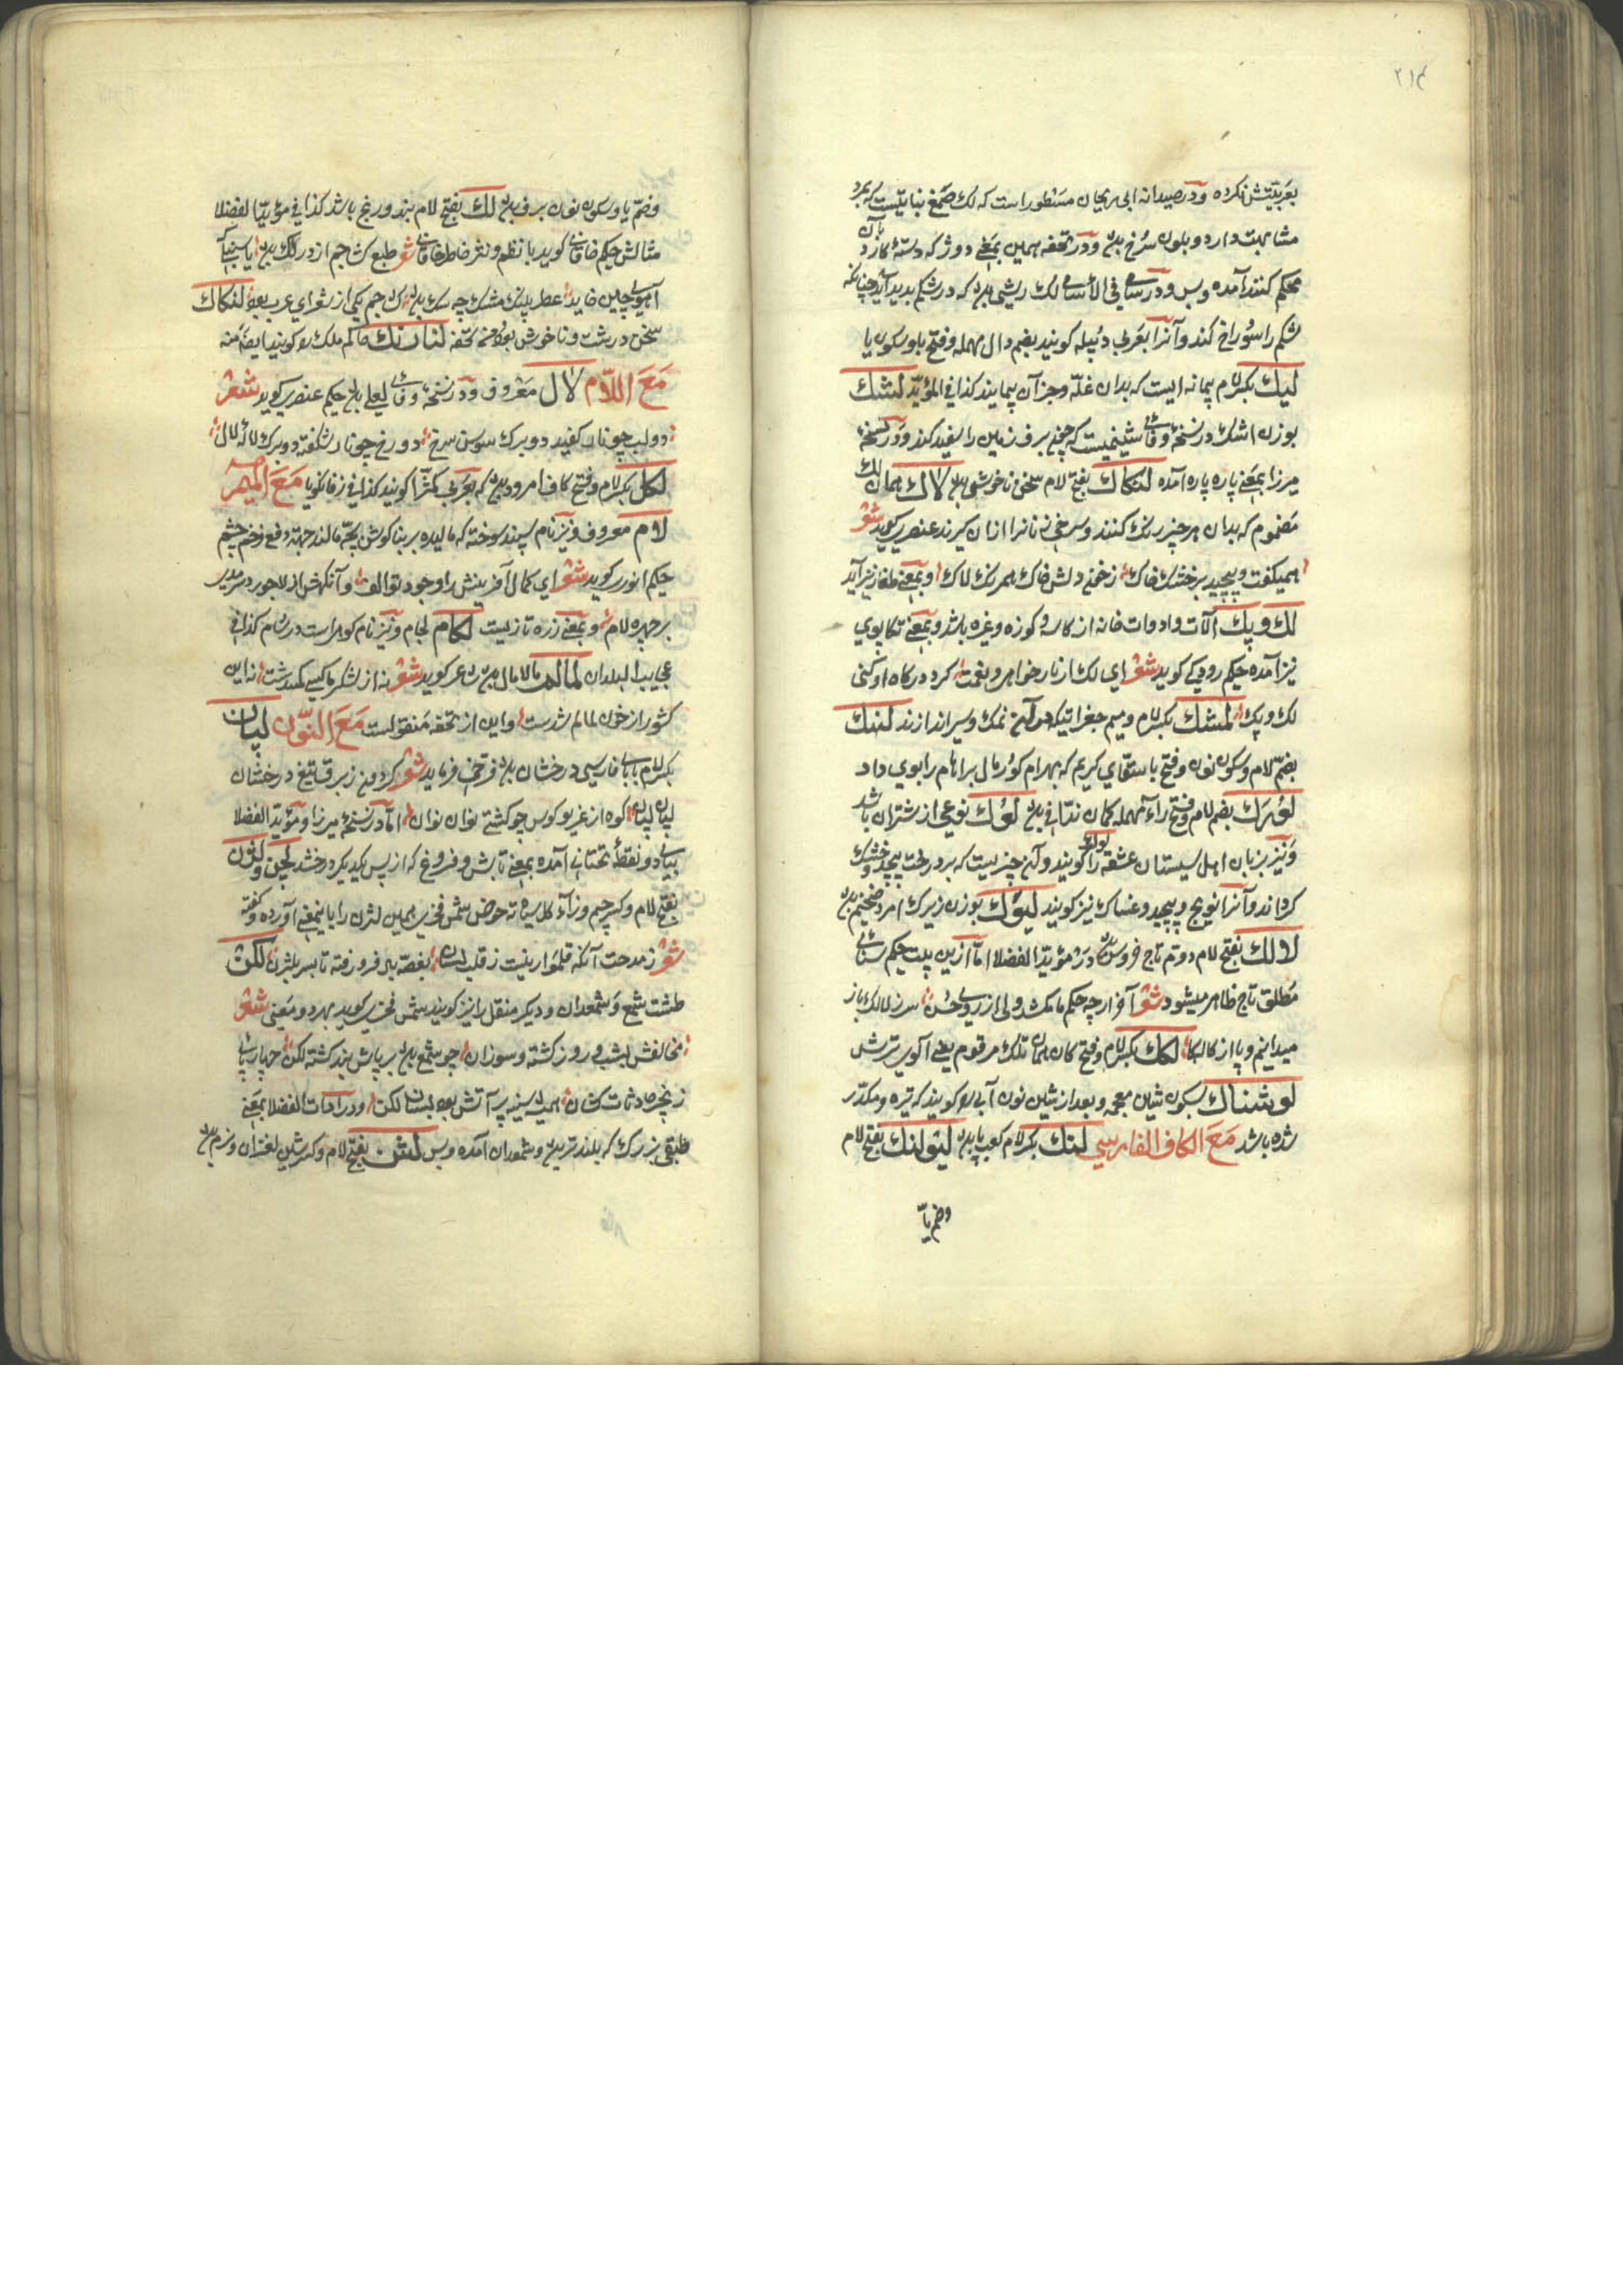 ٢١٤
بعربیتش نکرده ودر صیدانه ابی ریحان مسطور است که لک صمغ نباتیست که بمرد
مشابهت دارد وبلون سرخ بود ودر تحفه همین بمعنی دوژ که دسته کارد بآن
محکم کنند آمده وبس ودر سامی فی الأسامی لک ریشی بود که در شکم پدید آید چنانکه
شکم را سوراخ کند وآنرا بعربی دبیله کویند بضم دال مهمله وفتح با وسکون یا
لیک بکسر لام پیمانه ایست که بدان غلّه وجز آن پیمایند کذا فی المؤید لشک
بوزن اشک در نسخهٔ وفائی شبنمیست که چون برف زمین را سفید کند ودر نسخهٔ
میرزا بمعنی پاره پاره آمده لنکاک بفتح لام سخن ناخوش بود لاک همان لک
مضموم که بدان هر چیز رنک کنند وسرخی زنانرا ازان کیرند عنصری کوید شعر
همیکفت وپیچید برخشک خاک زخون دلش خاک همرنک لاک وبمعنی طغار نیز آید
لک وپک آلات وادوات خانه از کاسه وکوزه وغیره باشد وبمعنی تکاپوی
نیز آمده حکیم رودکی کوید شعر ای لک ار ناز خواهی ونعمت کرد درکاه او کنی
لک وپک لمشک بکسر لام ومیم جغراتیکه درو نمک وشیر اندازند لنبک
بضم لام وسکون نون وفتح با سقّای کریم که بهرام کور مال براهام را بوی داد
لوبرک بضم لام وفتح راء مهمله کمان ندّافی بود لوک نوعی از شتران باشد
ونیز بزبان اهل سیستان عشقه را لوک کویند وآن چیزیست که بر درخت پیچد وخشک
کرداند وآنرا نویج وپیچد وعنساک نیز کویند لیوک بوزن زیرک امرد ضخیم بود
لالک بفتح لام دوم تاج خروس بود در مؤید الفضلا امّا ازین بیت حکیم سنائی
مطلق تاج ظاهر میشود شعر آفزار چه حکم ما مکشد ولی از روی حسن سر ز لالک باز
میدانیم وپا از کالکا لکک بکسر لام وفتح کاف همان تلک مرقوم یعنی آلوی ترش
لوشناک بسکون شین معجمه وبعد از شین نون آبی را کویند که تیره ومکدّر
شده باشد مَعَ الکاف الفارسی لنک بکسر لام کعب پا بود لیولنک بفتح لام
وضم یا
وضم یا وسکون نون برف بود لک بفتح لام بند ورنج باشد کذا فی مؤید الفضلا
مثالش حکیم خاقانی کوید با نظم ونثر خاطر خاقانی شعر طبع کشاجم از در لک بود یا سنبلی که
آهوی چین خاید عطر پلنک مشک چه سک بود کشاجم یکی از شعرای عرب بود لنکاک
سخن درشت وناخوش بود من تحفه لنبانک حاکم ملک را کویند ایضا منه
مَعَ اللّام لال معروف ودر نسخهٔ وفائی لعل بود حکیم عنصری کوید شعر
دولب چو نار کفیده دو برک سوسن سرخ دو رخ چو نار شکفته دو برک لالهٔ لال
لکل بکسر لام وفتح کاف امرود بود که بعربی کمثرا کویند کذا فی زفانکویا مَعَ المیم
لام معروف ونیز نام سپند سوخته که مالیده بر بناکوش بچه مالند جهة دفع زخم چشم
حکیم انوری کوید شعر ای کمال آفرینش را وجود تو الف وآنکهش از لاجورد سرمدی
بر چهره لام وبمعنی زره تازیست لکام لجام ونیز نام کوهیست در شام کذا فی
عجایب البلدان لمالم مالامال بود شاعر کوید شعر نه از لشکر ما کسی کم شدست نه این
کشور از خون لمالم شدست واین از تحفه منقولست مَعَ النّون لپان
بکسر لام وبای فارسی درخشان بود فرخی فرماید شعر کردون ز برق تیغ درخشان
لپان لپان کوه از غریو کوس چو کشتی نوان نوان امّا در نسخهٔ میرزا ومؤید الفضلا
بیای دو نقطهٔ تحتانی آمده بمعنی تابش وفروغ که از پس یکدیکر درخشد لجن ولژن
بفتح لام وکسر جیم وزاء کل سیاه ته حوض شمس فخری همین لژن را باینمعنی آورده وکفته
شعر زمدحت آنکه قلموار نیست زقلب لسان بغصه فرو رفته تا بسر بلژن لکن
طشت شمع وشمعدان ودیکر منقل را نیز کویند شمس فخری کوید بهر دو معنی شعر
مخالفش بشب وروز کشته وسوزان چو شمع بود بر پاش بند کشته لکن چهار پای
زنجر حادثات کشان همیشه سینه پر آتش بود بسان لکن ودر اداة الفضلا بمعنی
طبقی بزرک که بلند تر بود وشمعدان آمده وبس لشن بفتح لام وکسر شین لغزان ونرم بود